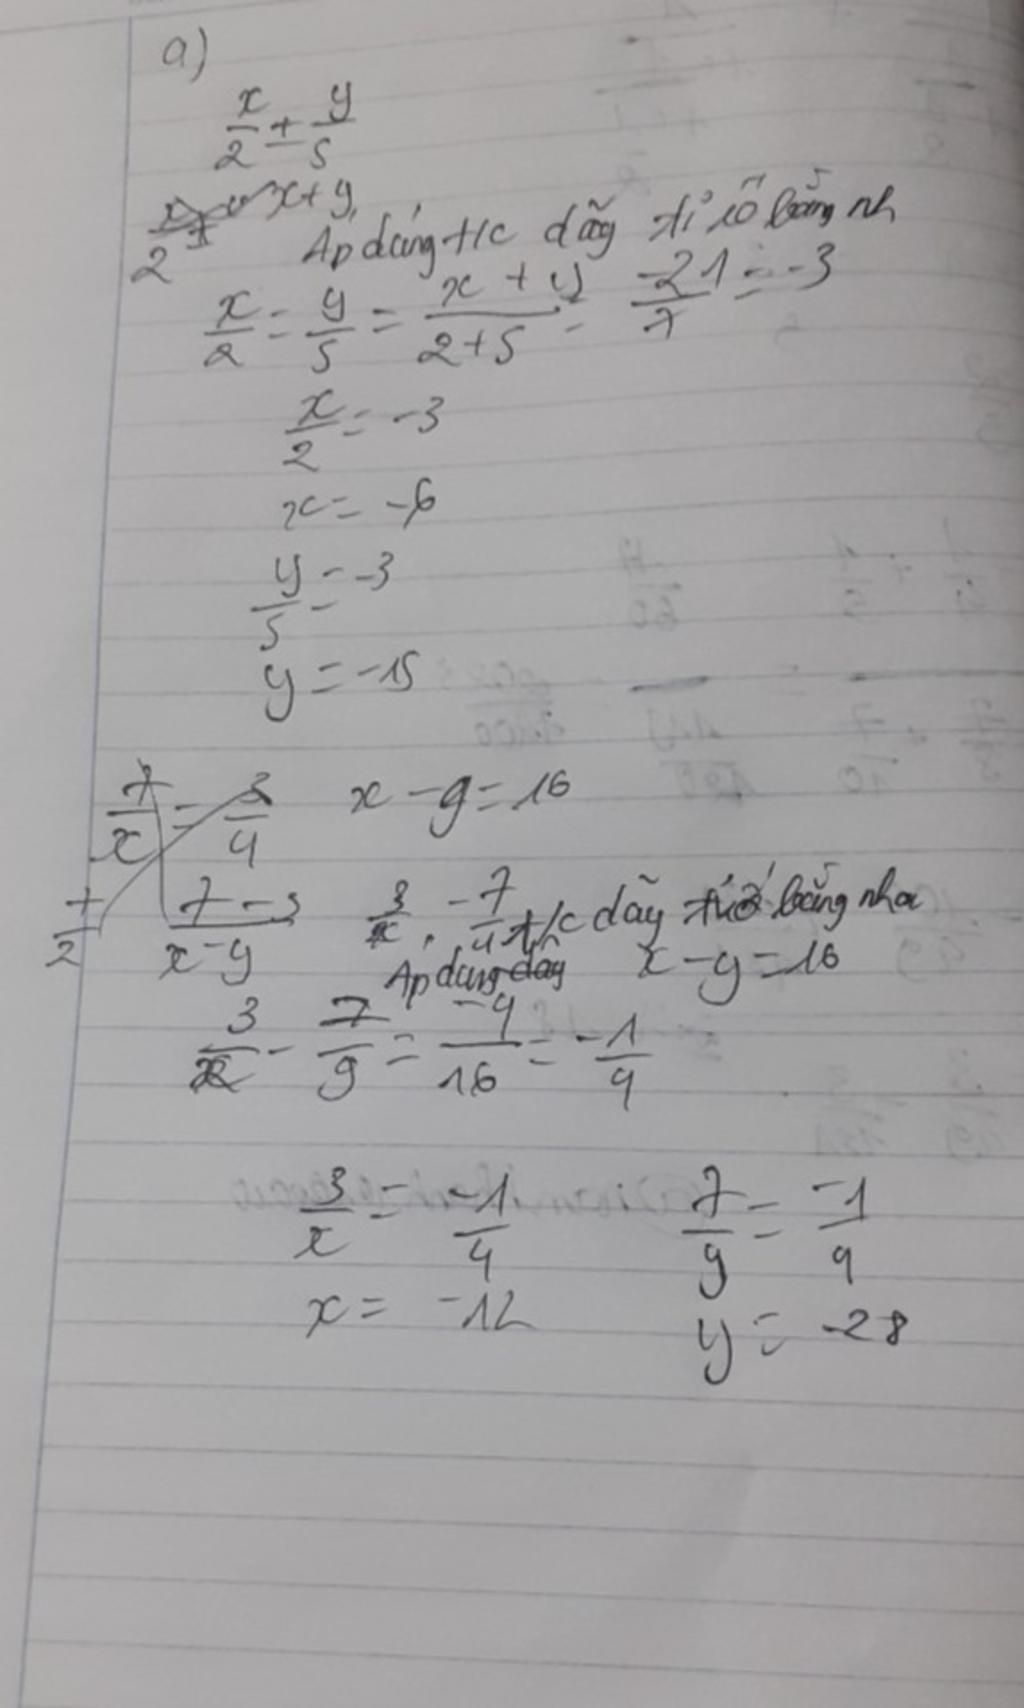 a)
x/2 + y/5
x/2 x+y
Áp dụng t/c dãy tỉ số bằng nh
x/2 = y/5 = x+y/2+5 = -21/7 = -3
x/2 = -3
x = -6
y/5 = -3
y = -15
7/x = 3/4 x - y = 16
7/2 7-3/x-y 3/x, -7/4 t/c dãy tỉ số bằng nha
Áp dụng dãy x - y = 16
3/x - 7/y = -4/16 = -1/4
3/x = -1/4 7/y = -1/4
x = -12 y = -28